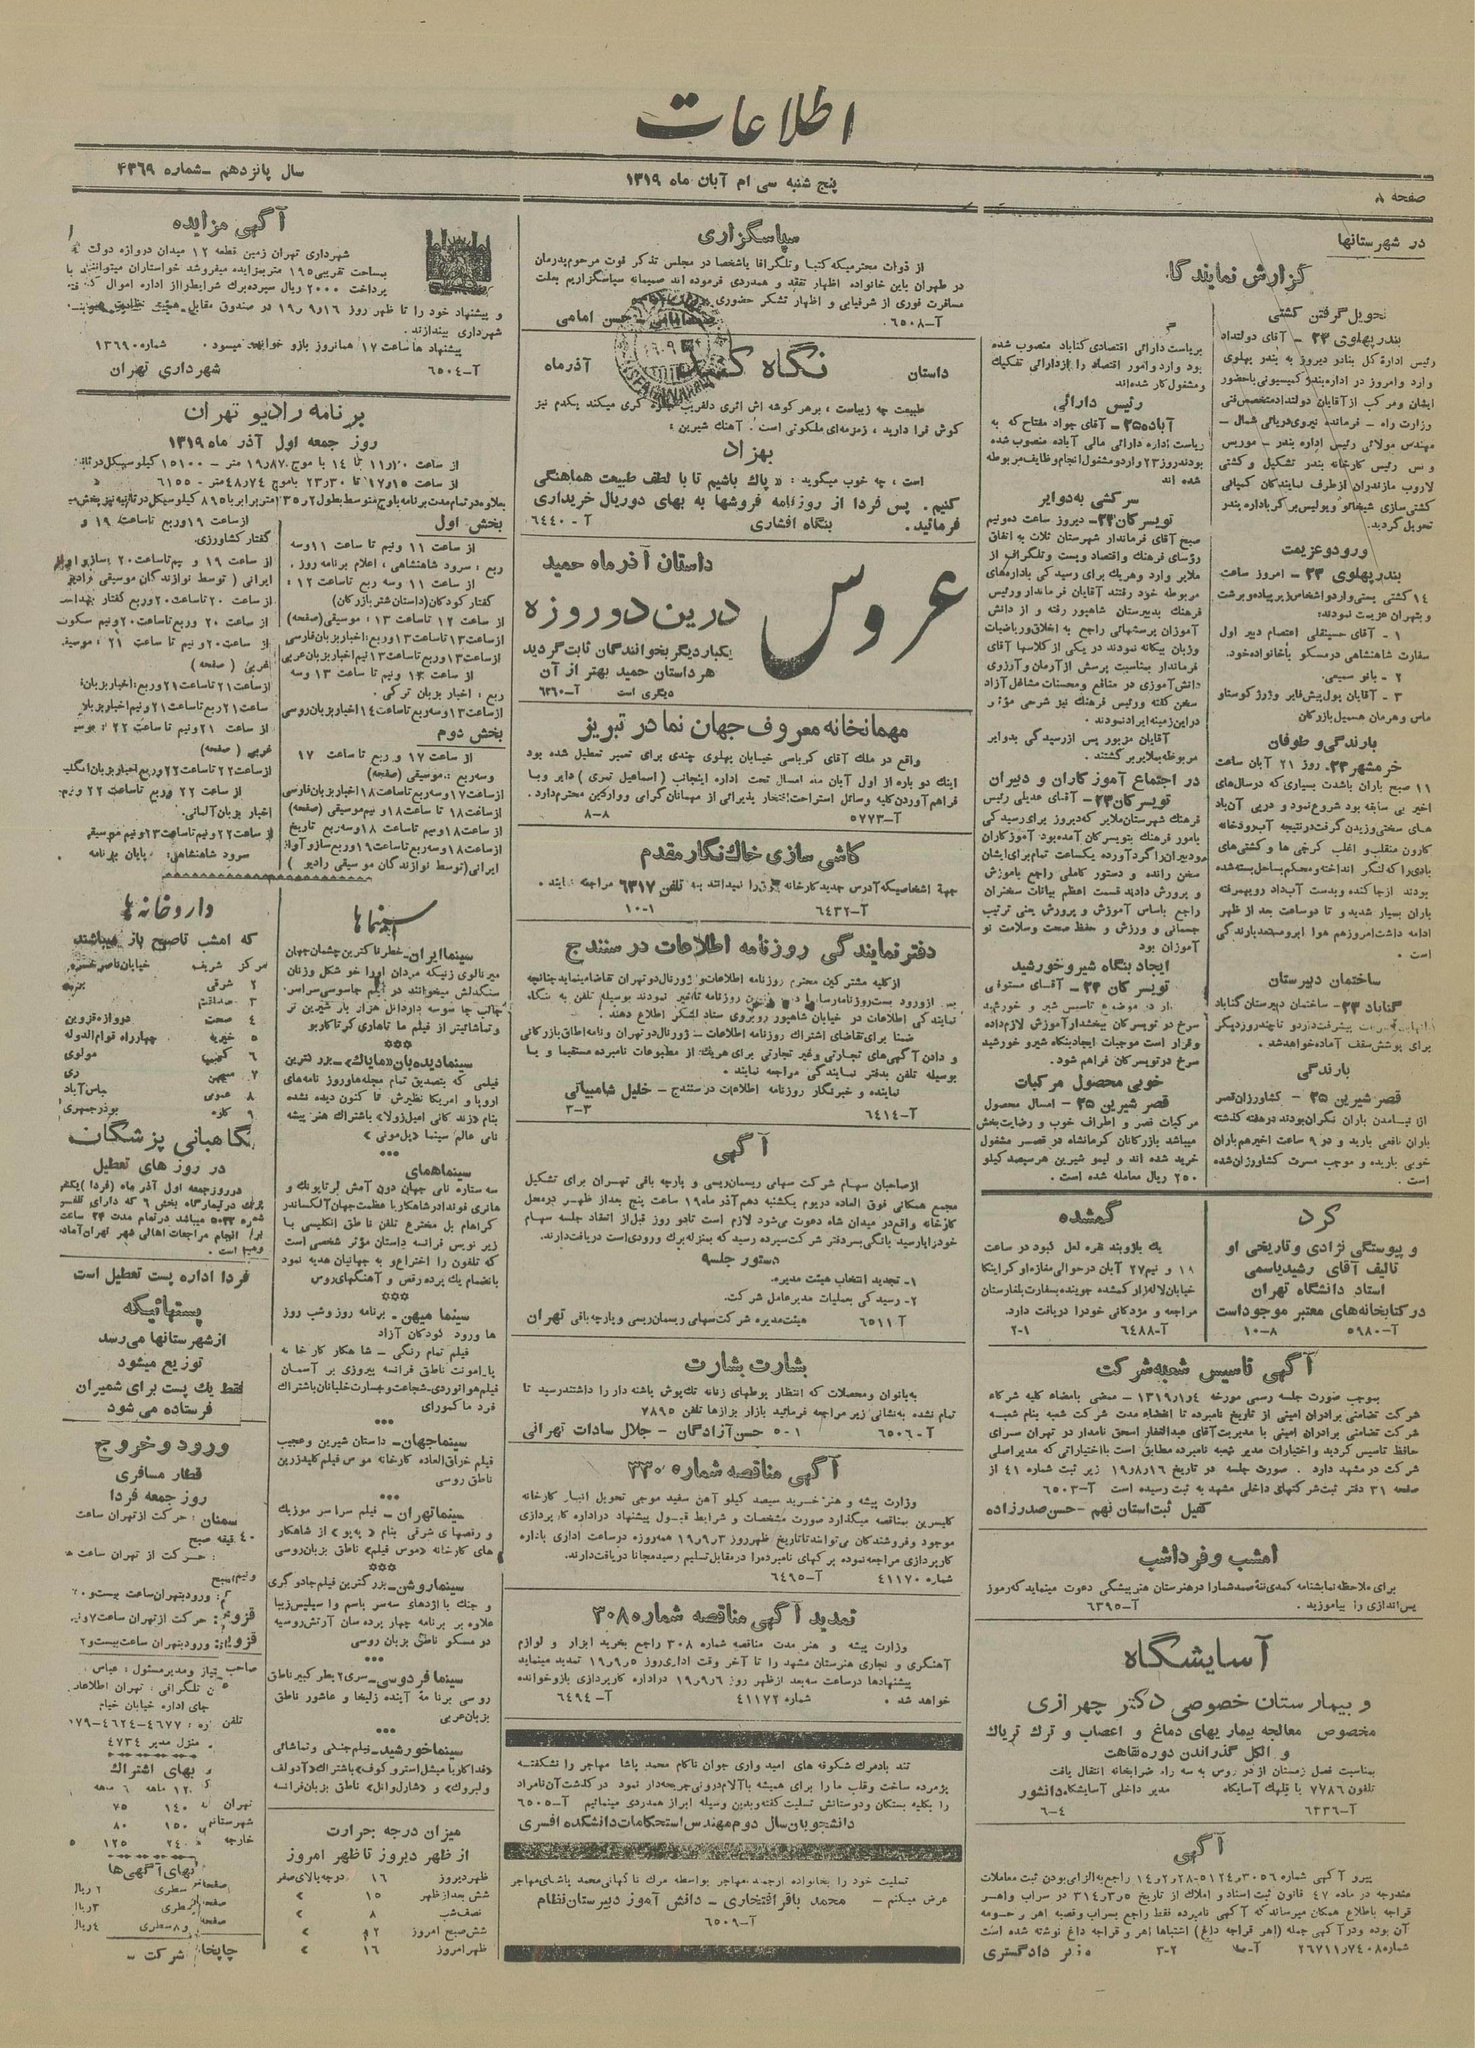 اطلاعات
صفحه ۸
پنج شنبه سی ام آبان ماه ۱۳۱۹
سال پانزدهم - شماره ۴۳۶۹
در شهرستانها
گزارش نمایندگا
تحویل گرفتن کشتی
بندر پهلوی ۲۳ - آقای دولتداد
رئیس ادارهٔ کل بنادر دیروز به بندر پهلوی
وارد و امروز در اداره بندر کمیسیونی با حضور
ایشان و مرکب از آقایان دولتداد متخصص فنی
وزارت راه - فرمانده نیروی دریائی شمال -
مهندس مولائی رئیس اداره بندر - موریس
و بس رئیس کارخانه بندر تشکیل و کشتی
لاروب مازندران از طرف نمایندگان کمپانی
تحویل گردید.
ورود و عزیمت
بندر پهلوی ۲۳ - امروز ساعت
۱۴ کشتی پستی وارد و اشخاص زیر پیاده و برشت
و بتهران عزیمت نمودند:
۱ - آقای حسینقلی اعتصام دبیر اول
سفارت شاهنشاهی در مسکو با خانواده خود.
۲ - بانو سمیعی.
۳ - آقایان پول پیش فایر و ژرژ کوستاو
ماس و هرمان هسیل بازرگان
بارندگی و طوفان
خرمشهر ۲۳. روز ۲۱ آبان ساعت
۱۱ صبح باران باشدت بسیاری که در سال‌های
اخیر بی سابقه بود شروع نمود و در پی آن باد
های سختی وزیدن گرفت در نتیجه آب رودخانه
کارون منقلب و اغلب کرجی ها و کشتی‌های
بادی را که لنگر انداخته و محکم بساحل بسته شده
بودند از جا کنده و بدست آب داد رویهمرفته
باران بسیار شدید و تا دو ساعت بعد از ظهر
ادامه داشت امروز هم هوا ابر و مستعد بارندگی
است.
ساختمان دبیرستان
گناباد ۲۳ - ساختمان دبیرستان گناباد
پیشرفت دارد و تا چند روز دیگر
برای پوشش سقف آماده خواهد شد.
بارندگی
قصر شیرین ۲۵ - کشاورزان قصر
از نیامدن باران نگران بودند در هفته گذشته
باران نافعی بارید و در ۹ ساعت اخیر هم باران
خوبی باریده و موجب مسرت کشاورزان شده
است.
بریاست دارائی اقتصادی گناباد منصوب شده
بود وارد و امور اقتصاد را از دارائی تفکیک
و مشغول کار شده‌اند
رئیس دارائی
آباده ۲۵ - آقای جواد مفتاح که به
ریاست اداره دارائی مالی آباده منصوب شده
بودند روز ۲۳ وارد و مشغول انجام وظایف مربوطه
شده اند
سرکشی به دوایر
تویسرکان ۲۳ - دیروز ساعت ده و نیم
صبح آقای فرماندار شهرستان ثلاث به اتفاق
رؤسای فرهنگ و اقتصاد و پست و تلگراف از
ملایر وارد و هر یک برای رسیدگی باداره‌های
مربوطه خود رفتند آقایان فرماندار و رئیس
فرهنگ بدبیرستان شاهپور رفته و از دانش
آموزان پرسشهائی راجع به اخلاق و ریاضیات
وزبان بیگانه نمودند در یکی از کلاسها آقای
فرماندار بمناسبت پرسش از آرمان و آرزوی
دانش آموزی در منافع و محسنات مشاغل آزاد
سخن گفته و رئیس فرهنگ نیز شرحی مؤثر
در این زمینه ایراد نمودند.
آقایان مزبور پس از رسیدگی بدوایر
مربوطه بملایر برگشتند.
در اجتماع آموزگاران و دبیران
تویسرکان ۲۳ - آقای عدیلی رئیس
فرهنگ شهرستان ملایر که دیروز برای رسیدگی
بامور فرهنگ بتویسرکان آمده بود آموزگاران
و دبیران را گرد آورده یکساعت تمام برای ایشان
سخن رانده و دستور کاملی راجع بآموزش
و پرورش دادند قسمت اعظم بیانات سخنران
راجع باساس آموزش و پرورش یعنی تربیت
جسمانی و ورزش و حفظ صحت و سلامت نو
آموزان بود
ایجاد بنگاه شیر و خورشید
تویسرکان ۲۳ - آقای مستوفی
سرخ در تویسرکان ببخشدار آموزش لازم داده
و قرار است موجبات ایجاد بنگاه شیر و خورشید
سرخ در تویسرکان فراهم شود.
خوبی محصول مرکبات
قصر شیرین ۲۵ - امسال محصول
مرکبات قصر و اطراف خوب و رضایت‌بخش
میباشد بازرگانان کرمانشاه در قصر مشغول
خرید شده اند و لیمو شیرین هر سیصد کیلو
۲۵۰ ریال معامله شده است.
کرد
و پیوستگی نژادی و تاریخی او
تالیف آقای رشید یاسمی
استاد دانشگاه تهران
در کتابخانه‌های معتبر موجود است
آ-۵۹۸۰ ۸-۱۰
گمشده
یک بازوبند نقره لعل کبود در ساعت
۱۸ و نیم ۲۷ آبان در حوالی مغازه لوکر اینکا
خیابان لاله‌زار گمشده جوینده بسفارت بلغارستان
مراجعه و مژدگانی خود را دریافت دارد.
آ-۶۴۸۸ ۱-۲
آگهی تاسیس شعبه شرکت
بموجب صورت جلسه رسمی مورخه ۱۳۱۹٫۱٫۴ - ممضی بامضاء کلیه شرکاء
شرکت تضامنی برادران امینی از تاریخ نامبرده تا انقضاء مدت شرکت شعبه بنام شعبه
شرکت تضامنی برادران امینی با مدیریت آقای عبدالغفار اسحق نامدار در تهران سرای
حافظ تاسیس گردید و اختیارات مدیر شعبه نامبرده مطابق است با اختیاراتی که مدیر اصلی
شرکت در مشهد دارد. صورت جلسه در تاریخ ۱۹٫۸٫۱۶ زیر ثبت شماره ۴۱ از
صفحه ۳۱ دفتر ثبت شرکتهای داخلی مشهد به ثبت رسیده است آ-۶۵۰۳
کفیل ثبت استان نهم - حسن صدرزاده
امشب و فرداشب
برای ملاحظه نمایشنامه کمدی ننهٔ صمد شما را در هنرستان هنرپیشگی دعوت مینماید که رموز
پس‌اندازی را بیاموزید. آ-۶۳۹۵
آسایشگاه
و بیمارستان خصوصی دکتر چهرازی
مخصوص معالجه بیماریهای دماغ و اعصاب و ترک تریاک
و الکل گذراندن دوره نقاهت
بمناسبت فصل زمستان از در روس به سه راه ضرابخانه انتقال یافت
تلفون ۷۷۸۶ با قلهک آسایگاه مدیر داخلی آسایشگاه دانشور
آ-۶۳۳۶ ۴-۶
آگهی
پیرو آگهی شماره ۳۰۵۶ر۵۱۲۴-۱۴٫۲٫۲۸ راجع به الزامی بودن ثبت معاملات
مندرجه در ماده ۴۷ قانون ثبت اسناد و املاک از تاریخ ۳۱۴٫۳٫۵ در سراب و اهر
قراجه باطلاع همگان میرساند که آگهی نامبرده فقط راجع بسراب و قصبه اهر و حومه
آن بوده و در آگهی جمله (اهر قراجه داغ) اشتباها اهر و قراجه داغ نوشته شده است
شماره ۲۶۷۱۱٫۷۴۰۸ ۲-۳ دادگستری
سپاسگزاری
از ذوات محترمیکه کتبا و تلگرافا یا شخصا در مجلس تذکر فوت مرحوم پدرمان
در طهران باین خانواده اظهار تفقد و همدردی فرموده اند صمیمانه سپاسگزاریم بعلت
مسافرت فوری از شرفیابی و اظهار تشکر حضوری
آ-۶۵۰۸ - حسن امامی
داستان نگاه آذر ماه
طبیعت چه زیباست، بر هر گوشه اش اثری دلفریب جلوه گری میکند یکدم نیز
گوش فرا دارید، زمزمه‌ای ملکوتی است. آهنگ شیرین:
بهزاد
است، چه خوب میگوید: «پاک باشیم تا با لطف طبیعت هماهنگی
کنیم. پس فردا از روزنامه فروشها به بهای دو ریال خریداری
فرمائید. بنگاه افشاری آ-۶۴۴۰
عروس
داستان آذر ماه حمید
درین دو روزه
یکبار دیگر بخوانندگان ثابت گردید
هر داستان حمید بهتر از آن
دیگری است آ-۶۳۶۰
مهمانخانه معروف جهان نما در تبریز
واقع در ملک آقای کرباسی خیابان پهلوی چندی برای تعمیر تعطیل شده بود
اینک دو باره از اول آبان ماه امسال تحت اداره اینجانب (اسماعیل نمری) دایر و با
فراهم آوردن کلیه وسائل استراحت افتخار پذیرائی از مهمانان گرامی و واردین محترم دارد.
آ-۵۷۷۳ ۸-۸
کاشی سازی خاک نگار مقدم
جهة اشخاصیکه آدرس جدید کارخانه فوق را نمیدانند به تلفن ۶۳۱۷ مراجعه نمایند.
آ-۶۴۳۲ ۱-۱۰
دفتر نمایندگی روزنامه اطلاعات در سنندج
از کلیه مشترکین محترم روزنامه اطلاعات و ژورنال دو تهران تقاضا مینماید چنانچه
پس از ورود پست روزنامه رسا روزنامه تأخیر نمودند بوسیله تلفن به بنگاه
نمایندگی اطلاعات در خیابان شاهپور روبروی ستاد لشکر اطلاع دهند.
ضمنا برای تقاضای اشتراک روزنامه اطلاعات - ژورنال دو تهران و نامه اطاق بازرگانی
و دادن آگهی‌های تجارتی و غیر تجارتی برای هر یک از مطبوعات نامبرده مستقیما و یا
بوسیله تلفن بدفتر نمایندگی مراجعه نمایند.
نماینده و خبرنگار روزنامه اطلاعات در سنندج - خلیل شامبیاتی
آ-۶۴۱۴ ۳-۳
آگهی
از صاحبان سهام شرکت سهامی ریسمان‌ریسی و پارچه بافی تهران برای تشکیل
مجمع همگانی فوق العاده در یوم یکشنبه دهم آذر ماه ۱۹ ساعت پنج بعد از ظهر در محل
کارخانه واقع در میدان شاه دعوت می‌شود لازم است تا دو روز قبل از انعقاد جلسه سهام
خود را یا رسید بانکی بسر دفتر شرکت سپرده رسید که بمنزله برگ ورودی است دریافت دارند.
دستور جلسه
۱- تجدید انتخاب هیئت مدیره.
۲- رسیدگی بعملیات مدیر عامل شرکت.
آ ۶۵۱۱ هیئت مدیره شرکت سهامی ریسمان‌ریسی و پارچه بافی تهران
بشارت بشارت
به بانوان و محصلات که انتظار پوطهای زنانه تک‌پوش پاشنه دار را داشتند رسید تا
تمام نشده به نشانی زیر مراجعه فرمائید بازار بزازها تلفن ۷۸۹۵
آ-۶۵۰۶ ۱-۵ حسن آزادگان - جلال سادات تهرانی
آگهی مناقصه شماره ۳۳۰
وزارت پیشه و هنر خرید سیصد کیلو آهن سفید موجی تحویل انبار کارخانه
گلیسرین بمناقصه میگذارد صورت مشخصات و شرایط قبول پیشنهاد در اداره کارپردازی
موجود و فروشندگان می‌توانند تا تاریخ ظهر روز ۱۹٫۹٫۳ همه‌روزه در ساعت اداری باداره
کارپردازی مراجعه نموده برگهای نامبرده را در مقابل تسلیم رسید مجانا دریافت دارند.
شماره ۴۱۱۷۰ آ-۶۴۹۵
تمدید آگهی مناقصه شماره ۳۰۸
وزارت پیشه و هنر مدت مناقصه شماره ۳۰۸ راجع بخرید ابزار و لوازم
آهنگری و نجاری هنرستان مشهد را تا آخر وقت اداری روز ۱۹٫۹٫۵ تمدید مینماید
پیشنهادها در ساعت سه بعد از ظهر روز ۱۹٫۹٫۶ در اداره کارپردازی باز و خوانده
خواهد شد. شماره ۴۱۱۷۲ آ-۶۴۹۴
تند باد مرگ شکوفه های امیدواری جوان ناکام محمد پاشا مهاجر را نشکفته
پژمرده ساخت و قلب ما را برای همیشه با آلام درونی جریحه‌دار نمود در گذشت آن نامراد
را بکلیه بستگان و دوستانش تسلیت گفته و بدین وسیله ابراز همدردی مینمائیم آ-۶۵۰۵
دانشجویان سال دوم مهندس استحکامات دانشکده افسری
تسلیت خود را بخانواده ارجمند مهاجر بواسطه مرگ ناگهانی محمد پاشای مهاجر
عرض میکنم - محمد باقر افتخاری - دانش آموز دبیرستان نظام
آ-۶۵۰۹
آگهی مزایده
شهرداری تهران زمین قطعه ۱۲ میدان دروازه دولت
بمساحت تقریبی ۱۹۵ متر بمزایده میفروشد خواستاران میتوانند با
پرداخت ۲۰۰۰ ریال سپرده برگ شرایط را از اداره اموال
و پیشنهاد خود را تا ظهر روز ۱۹٫۹٫۱۶ در صندوق مقابل هیئت نظارت
شهرداری بیندازند.
پیشنهادها ساعت ۱۷ همانروز باز و خوانده میشود. شماره ۱۳۶۹۰
آ-۶۵۰۴ شهرداری تهران
برنامه رادیو تهران
روز جمعه اول آذر ماه ۱۳۱۹
بخش اول
از ساعت ۱۱ و نیم تا ساعت ۱۱ و سه
ربع: سرود شاهنشاهی، اعلام برنامه روز.
از ساعت ۱۱ و سه ربع تا ساعت ۱۲:
گفتار کودکان (داستان شتر بازرگان)
از ساعت ۱۲ تا ساعت ۱۳: موسیقی (صفحه)
از ساعت ۱۳ تا ساعت ۱۳ و ربع: اخبار بزبان فارسی
از ساعت ۱۳ و ربع تا ساعت ۱۳ و نیم اخبار بزبان عربی
از ساعت ۱۳ و نیم تا ساعت ۱۳ و سه
ربع: اخبار بزبان ترکی.
از ساعت ۱۳ و سه ربع تا ساعت ۱۴ اخبار بزبان روسی
بخش دوم
از ساعت ۱۷ و ربع تا ساعت ۱۷
و سه ربع: موسیقی (صفحه)
از ساعت ۱۷ و سه ربع تا ساعت ۱۸ اخبار بزبان فارسی
از ساعت ۱۸ تا ساعت ۱۸ و نیم موسیقی (صفحه)
از ساعت ۱۸ و نیم تا ساعت ۱۸ و سه ربع تاریخ
از ساعت ۱۸ و سه ربع تا ساعت ۱۹ و ربع ساز و آواز
ایرانی (توسط نوازندگان موسیقی رادیو)
از ساعت ۱۹ و ربع تا ساعت ۱۹ و
گفتار کشاورزی.
از ساعت ۱۹ و نیم تا ساعت ۲۰
ایرانی (توسط نوازندگان موسیقی رادیو
از ساعت ۲۰ تا ساعت ۲۰ و ربع گفتار بهداشت
از ساعت ۲۰ و ربع تا ساعت ۲۰ و نیم
از ساعت ۲۰ و نیم تا ساعت ۲۱ :
غربی (صفحه)
از ساعت ۲۱ تا ساعت ۲۱ و ربع: اخبار بزبان
ساعت ۲۱ و ربع تا ساعت ۲۱ و نیم اخبار بزبان
از ساعت ۲۱ و نیم تا ساعت ۲۲:
غربی (صفحه)
از ساعت ۲۲ تا ساعت ۲۲ و ربع اخبار بزبان انگلی
از ساعت ۲۲ و ربع تا ساعت ۲۲ و نیم
اخبار بزبان آلمانی.
سرود شاهنشاهی: پایان برنامه
سینماها
سینما ایران - خطرناکترین چشمان جهان
سنگدلش میخوانند در فیلم جاسوسی سراسر
جالب جاسوسه داردانل هزار بار شیرین تر
و تماشائیتر از فیلم ماتاهاری گرتا گاربو
سینما دیده‌بان «مایاک» - بزرگترین
فیلمی که بتصدیق تمام مجله‌ها و روزنامه‌های
اروپا و امریکا نظیرش تا کنون دیده نشده
بنام «زندگانی امیل زولا» باشتراک هنرپیشه
نامی عالم سینما «پل مونی»
سینما همای
سه ستاره نامی جهان دون آمش لرتا یونگ و
هانری فوندا در شاهکار با عظمت جهان آلکساندر
گراهام بل مخترع تلفن ناطق انگلیسی با
زیر نویس فرانسه داستان مؤثر شخصی است
که تلفون را اختراع و به جهانیان هدیه نمود
بانضمام یک پرده رقص و آهنگهای روس
سینما میهن - برنامه روز و شب روز
ها ورود کودکان آزاد
فیلم تمام رنگی - شاهکار کارخانه
پارامونت ناطق فرانسه پیروزی بر آسمان
فیلم هوانوردی - شجاعت و جسارت خلبانان باشتراک
فرد ماکمورای
سینما جهان - داستان شیرین و عجیب
فیلم خارق‌العاده کارخانه موس فیلم کلید زرین
ناطق روسی
سینما تهران - فیلم سراسر موزیک
و رقصهای شرقی بنام «په‌پو» از شاهکار
های کارخانه «موس فیلم» ناطق بزبان روسی
سینما روشن - بزرگترین فیلم جادوگری
و جنگ با اژدهای سه‌سر باسم واسیلیس زیبا
علاوه بر برنامه چهار پرده سان آرتش روسیه
در مسکو ناطق بزبان روسی
سینما فردوسی - سری ۲ پطر کبیر ناطق
روسی برنامهٔ آینده زلیخا و عاشور ناطق
بزبان عربی
سینما خورشید - فیلم جنگی و تماشائی
«فداکار یا میشل استروگوف» باشتراک «آدولف
ولبروک» و «شارل وانل» ناطق بزبان فرانسه
میزان درجه حرارت
از ظهر دیروز تا ظهر امروز
ظهر دیروز ۱۶ درجه بالای صفر
شش بعد از ظهر ۱۵ »
نصف شب ۸ »
شش صبح امروز ۲ »
ظهر امروز ۱۶ »
داروخانه‌ها
که امشب تا صبح باز میباشند
مرکز شریف خیابان ناصر خسرو
۲ شرقی
۳ صداقت
۴ صحت دروازه قزوین
۵ خیریه چهارراه قوام الدوله
۶ مولوی
۷ میهن ری
۸ عمومی عباس آباد
۹ کاوه بوذرجمهری
نگاهبانی پزشکان
در روز های تعطیل
در روز جمعه اول آذر ماه (فردا)
شماره ۵۰۳۳ میباشد در تمام مدت ۲۴ ساعت
انجام مراجعات اهالی شهر تهران آماده
فردا اداره پست تعطیل است
پستهائیکه
از شهرستانها می‌رسد
توزیع میشود
فقط یک پست برای شمیران
فرستاده می شود
ورود و خروج
قطار مسافری
روز جمعه فردا
سمنان: حرکت از تهران ساعت
۴۰ دقیقه صبح
: حرکت از تهران ساعت
ورود بتهران ساعت بیست و
قزوین: حرکت از تهران ساعت ۷ و نیم
ورود بتهران ساعت بیست و ۲
صاحب امتیاز و مدیر مسئول: عباس
تلگرافی: تهران اطلاعات
جای اداره خیابان خیام
تلفن
منزل مدیر ۴۷۳۴
بهای اشتراک
۱۲ ماهه ۶ ماهه
تهران ۱۴۰ ۷۵
شهرستانها ۱۵۰ ۸۰
خارجه ۲۴۰ ۱۲۵
بهای آگهی‌ها
صفحه سطری ۲ ریال
صفحه سطری ۳ ریال
صفحه و ۸ سطری ۴ ریال
چاپخانه شرکت